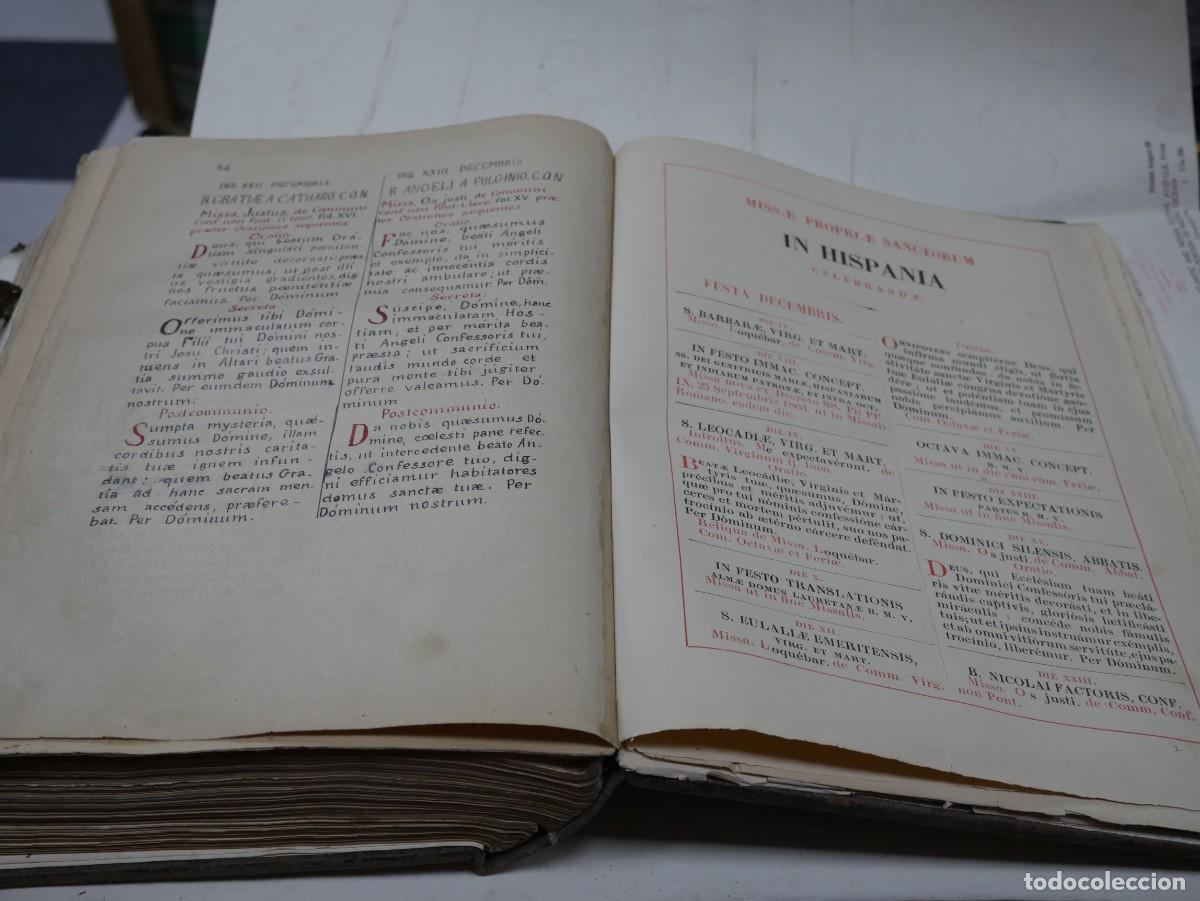 84
DIE XXII DECEMBRIS.
B. GRATIÆ A CATHARO, C.O.N.
Missa, Justus, de Communi
Conf. non Pont. II loco. fol. XVI.
præter Orationes sequentes
Oratio.
Deus, qui beatum Gra-
tiam singulari pœniten-
tiæ virtute decorasti: præs
ta quæsumus; ut post illi-
us vestigia gradientes, dig
nos fructus pœnitentiæ
faciamus. Per Dóminum
Secreta.
Offerimus tibi Domi-
ne immaculatum cor-
pus Filii tui Domini nos-
tri Jesu Christi; quem in-
tuens in Altari beatus Gra-
tia summo gaudio exsul-
tavit. Per eumdem Dóminum
nostrum.
Postcommunio.
Sumpta mysteria, quæ-
sumus Dómine, illam
cordibus nostris carita-
tis tuæ ignem infun-
dant: quem beatus Gra-
tia ad hanc sacram men-
sam accedens, præfere-
bat. Per Dóminum.
DIE XXIII DECEMBRIS
B. ANGELI A FULGINIO, C.O.N
Missa, Os justi, de Communi
Conf. non Pont. I. loco. fol. XV. præ-
ter Orationes sequentes.
Oratio
Fac nos, quæsumus
Dómine, beati Angeli
Confessoris tui meritis
et exemplo, ita in simplici-
tate ac innocentia cordis
nostri ambulare; ut præ-
mia consequamur. Per Dóm.
Secreta.
Súscipe, Dómine, hanc
immaculatam Hos-
tiam, et per merita bea-
ti Angeli Confessoris tui,
præsta; ut sacrificium
laudis mundo corde et
pura mente tibi júgiter
offerre valeamus. Per Dó-
minum
Postcommunio.
Da nobis quæsumus Dó-
mine, cœlesti pane refec-
ti, ut intercedente beato An-
gelo Confessore tuo, dig-
ni efficiamur habitatores
domus sanctæ tuæ. Per
Dóminum nostrum.
MISSÆ PROPRIÆ SANCTORUM
IN HISPANIA
CELEBRANDÆ.
FESTA DECEMBRIS.
DIE IV.
S. BARBARÆ, VIRG. ET MART.
Missa. Loquébar. de Comm. Virg.
DIE VIII.
IN FESTO IMMAC. CONCEPT.
SS. DEI GENITRICIS MARIÆ, HISPANIARUM
ET INDIARUM PATRONÆ, ET INFRA OCT.
Missa nova ex Decreto SS. Pii PP
IX, 25 Septembris 1863, ut in Missali
Romano, eadem die.
DIE IX.
S. LEOCADIÆ, VIRG. ET MART.
Introitus. Me expectavérunt. de
Comm. Virginum ij. loco.
Oratio.
Beatæ Leocádiæ, Virginis et Már-
tyris tuæ, quæsumus, Dómine,
précibus et méritis adjuvémur: ut,
quæ pro tui nóminis confessióne cár-
ceres et mortem pértulit, suo nos pa-
trocínio ab ætérno cárcere deféndat.
Per Dóminum.
Reliqua de Missa. Loquébar.
Com. Octavæ et Feriæ.
DIE X.
IN FESTO TRANSLATIONIS
ALMÆ DOMUS LAURETANÆ B. M. V.
Missa ut in fine Missalis.
DIE XII.
S. EULALIÆ EMERITENSIS,
VIRG. ET MART.
Missa. Loquébar. de Comm. Virg.
Oratio.
Omnipotens sempitérne Deus, qui
infirma mundi éligis, ut fórtia
quæque confúndas: da nobis in fes-
tivitáte sanctæ Virginis et Mártyris
tuæ Eulaliæ cóngrua devotióne gau-
dére; ut et poténtiam tuam in ejus
passióne laudémus, et promíssum
nobis percipiámus auxílium. Per
Dóminum.
Com. Octavæ et Feriæ.
DIE XV.
OCTAVA IMMAC. CONCEPT.
B. M. V.
Missa ut in die cum com. Feriæ.
DIE XVIII.
IN FESTO EXPECTATIONIS
PARTUS B. M. V.
Missa ut in fine Missalis.
DIE XX.
S. DOMINICI SILENSIS, ABBATIS.
Missa. Os justi. de Comm. Abbat.
Oratio.
Deus, qui Ecclésiam tuam beáti
Domínici Confessóris tui præclá-
ris vitæ méritis decorásti, et in libe-
rándis captívis, gloriósis lætificásti
miráculis: concéde nobis fámulis
tuis; ut et ipsíus instruámur exémplis,
et ab omni vitiórum servitúte, ejus pa-
trocínio, liberémur. Per Dóminum.
DIE XXIII.
B. NICOLAI FACTORIS, CONF.
Missa. Os justi. de Comm. Conf.
non Pont.
1.
todocoleccion